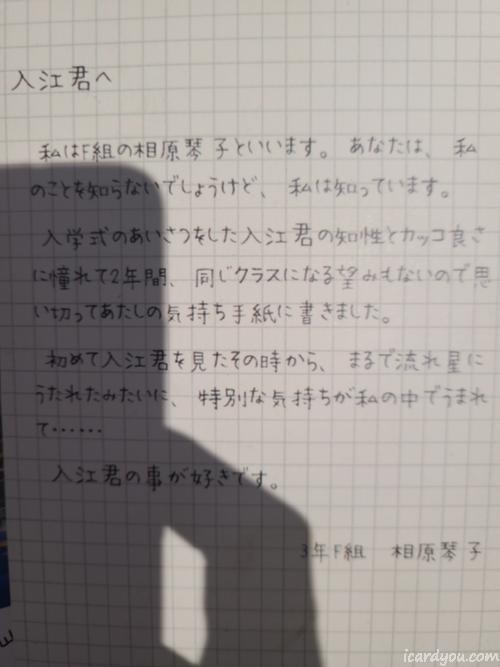 入江君へ
私はF組の相原琴子といいます。あなたは、私
のことを知らないでしょうけど、私は知っています。
入学式のあいさつをした入江君の知性とカッコ良さ
に憧れて2年間、同じクラスになる望みもないので思
い切ってあたしの気持ち手紙に書きました。
初めて入江君を見たその時から、まるで流れ星に
うたれたみたいに、特別な気持ちが私の中でうまれ
て……
入江君の事が好きです。
3年F組 相原琴子
icardyou.com